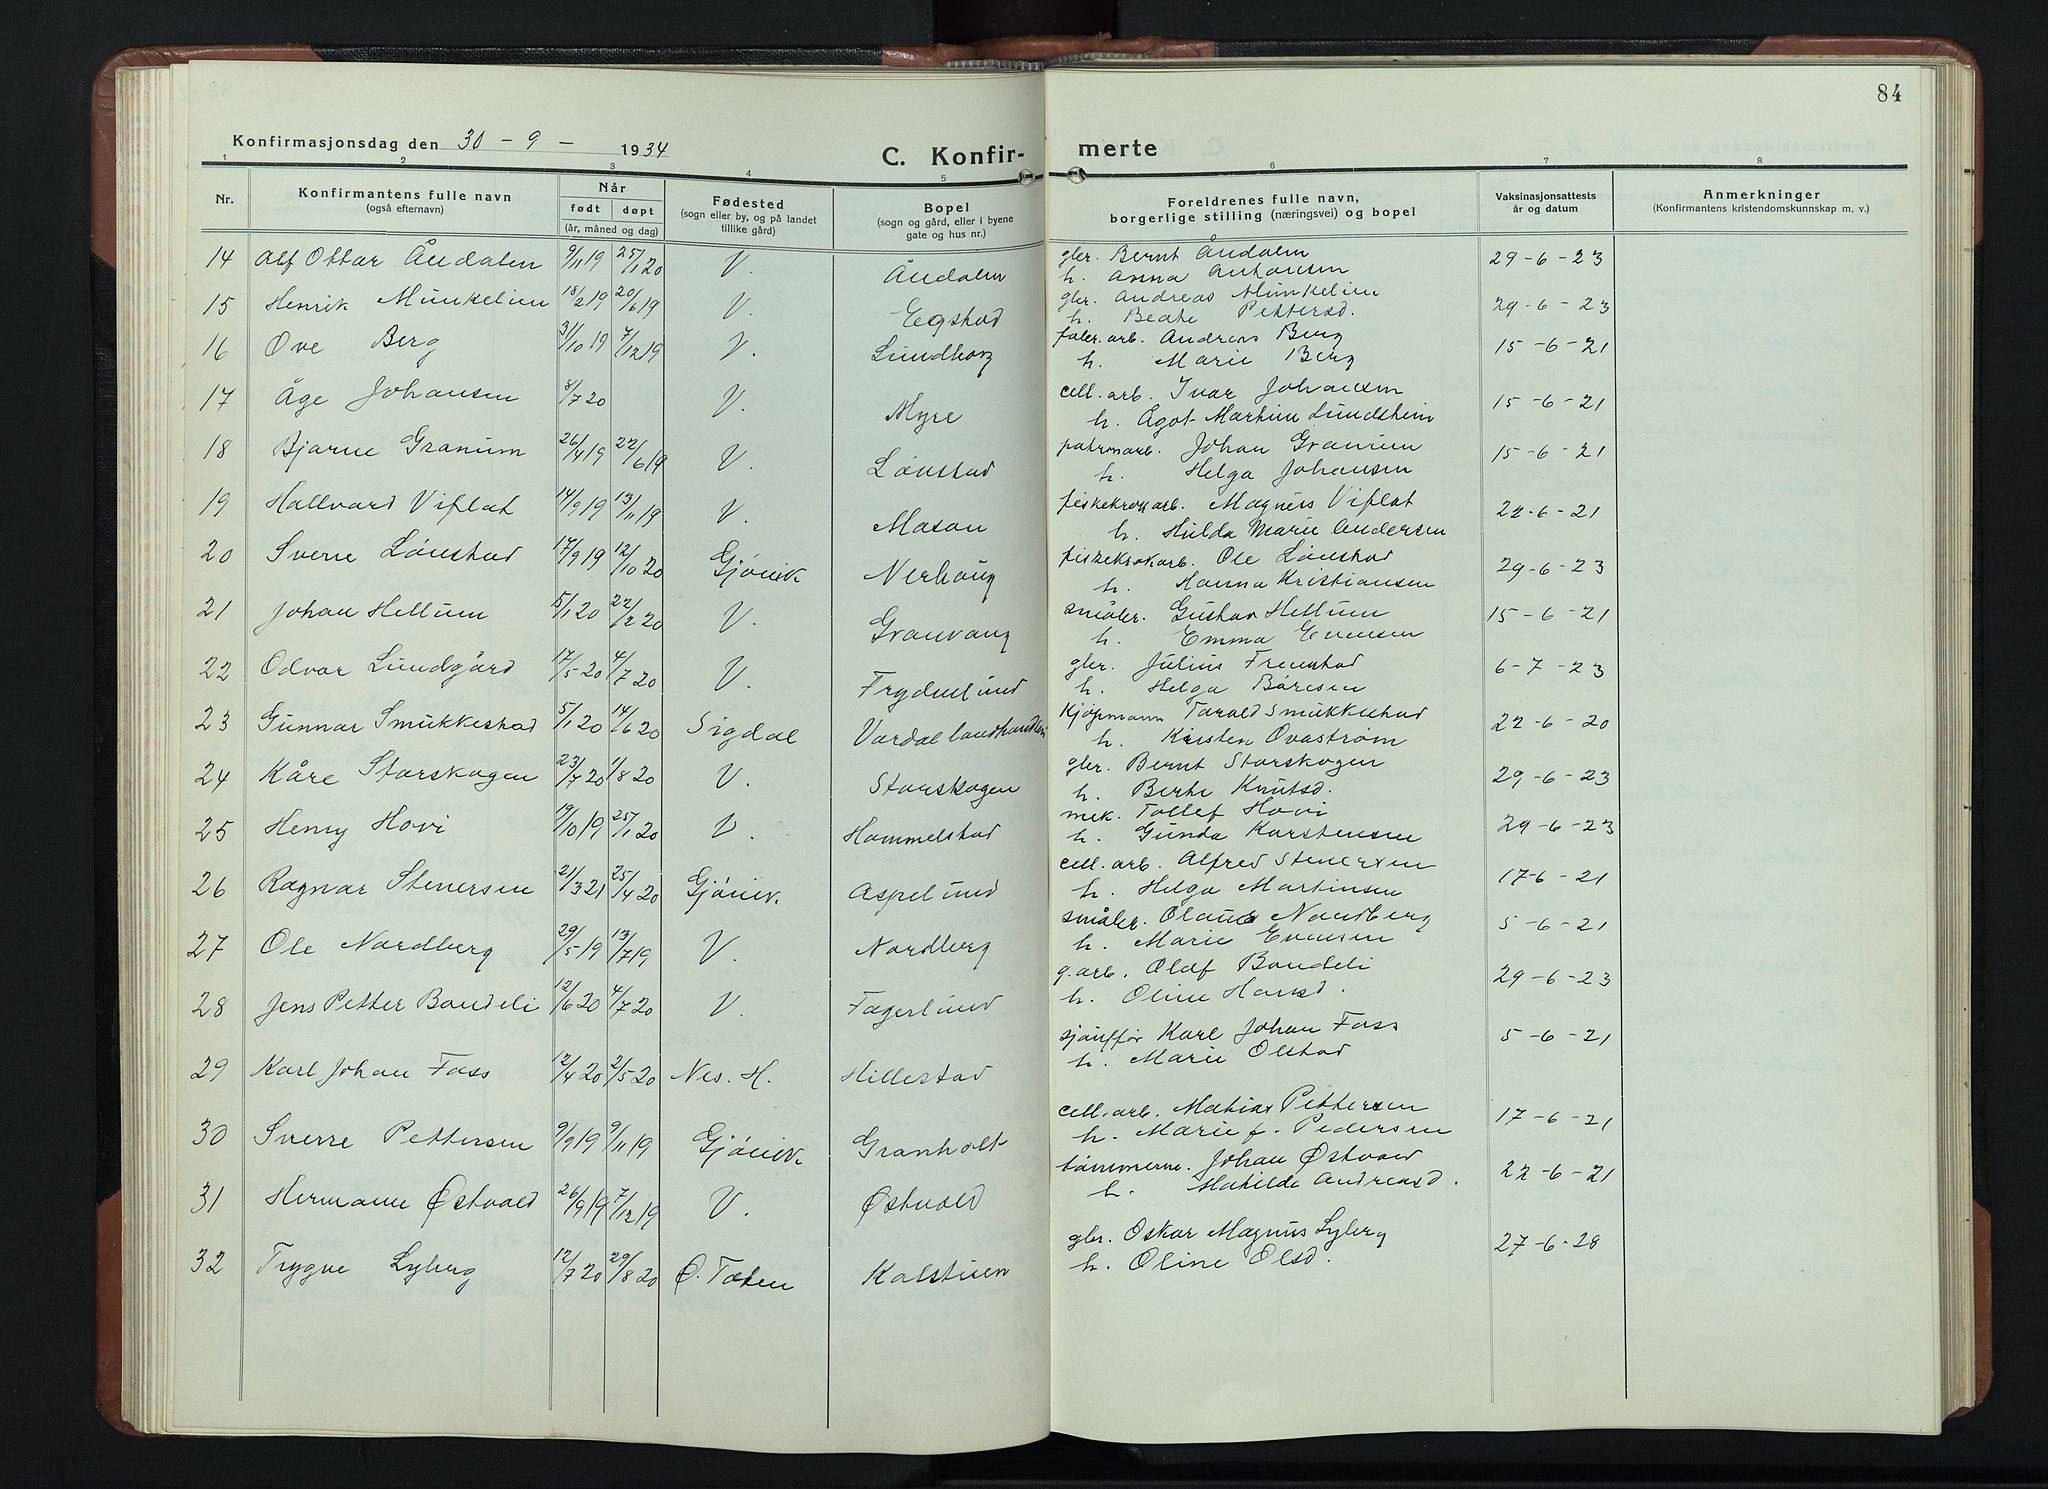 84
Konfirmasjonsdag den 30 - 9 - 1934
C. Konfir- merte
1 2 3 4 5 6 7 8
Nr. Konfirmantens fulle navn (også efternavn) Når født døpt (år, måned og dag) Fødested (sogn eller by, og på landet tillike gård) Bopel (sogn og gård, eller i byene gate og hus nr.) Foreldrenes fulle navn, borgerlige stilling (næringsvei) og bopel Vaksinasjonsattests år og datum Anmerkninger (Konfirmantens kristendomskunnskap m. v.)
14 Alf Ottar Åndalen 9/11 19 25/1 20 V. Åndalen gbr. Bernt Åndalen
h. Anna Antonsen 29-6-23
15 Henrik Munkelien 18/2 19 20/6 19 V. Egstad gbr. Andreas Munkelien
h. Beate Pettersd. 29-6-23
16 Ove Berg 31/10 19 7/12 19 V. Lundborg arb. Andreas Berg
h. Marie Berg 15-6-21
17 Åge Johansen 8/7 20 V. Myre cell. arb. Ivar Johansen
h. Agot Martine Lundsheim 15-6-21
18 Bjarne Granum 26/4 19 22/6 19 V. Lønstad patronarb. Johan Granum
h. Helga Johansen 15-6-21
19 Hallvard Viflat 14/9 19 13/11 19 V. Mason fiskekrokarb. Magnus Viflat
h. Hilda Marie Andersen 22-6-21
20 Sverre Lønstad 17/9 19 12/10 20 Gjøvik Nerhaug fiskekrokarb. Ole Lønstad
h. Hanna Kristiansen 29-6-23
21 Johan Hellum 5/1 20 22/2 20 V. Granvang småbr. Gustav Hellum
h. Emma Evensen 15-6-21
22 Odvar Lundgård 17/5 20 4/7 20 V. Frydenlund gbr. Julius Fremstad
h. Helga Børesen 6-7-23
23 Gunnar Smukkestad 5/1 20 14/6 20 Sigdal Vardal landhandleri Kjøpmann Tarald Smukkestad
h. Kirsten Ovastrøm 22-6-20
24 Kåre Storskogen 23/7 20 1/8 20 V. Storskogen gbr. Bernt Storskogen
h. Berte Knutsd. 29-6-23
25 Henry Hovi 19/10 19 25/1 20 V. Hammelstad mek. Tollef Hovi
h. Gunda Karstensen 29-6-23
26 Ragnar Stenersen 21/3 21 25/4 20 Gjøvik. Aspelund cell. arb. Alfred Stenersen
h. Helga Martinsen 17-6-21
27 Ole Nordberg 29/5 19 13/7 19 V. Nordberg småbr. Olaus Nordberg
h. Marie Evensen 5-6-21
28 Jens Petter Bondeli 12/6 20 4/7 20 V. Fagerlund g.arb. Olaf Bondeli
h. Oline Hansd. 29-6-23
29 Karl Johan Foss 12/4 20 2/5 20 Nes. H. Hillestad sjåuffør Karl Johan Foss
h. Marie Olstad 5-6-21
30 Sverre Pettersen 9/9 19 9/11 19 Gjøvik Granholt cell. arb. Mathias Pettersen
h. Marie f. Pedersen 17-6-21
31 Hermann Østvold 26/9 19 7/12 19 V. Østvold tømmerm. Johan Østvold
h. Mathilde Andreasd. 22-6-21
32 Trygve Lyberg 12/7 20 29/8 20 Ø. Toten Kalstuen gbr. Oskar Magnus Lyberg
h. Oline Olsd. 27-6-28